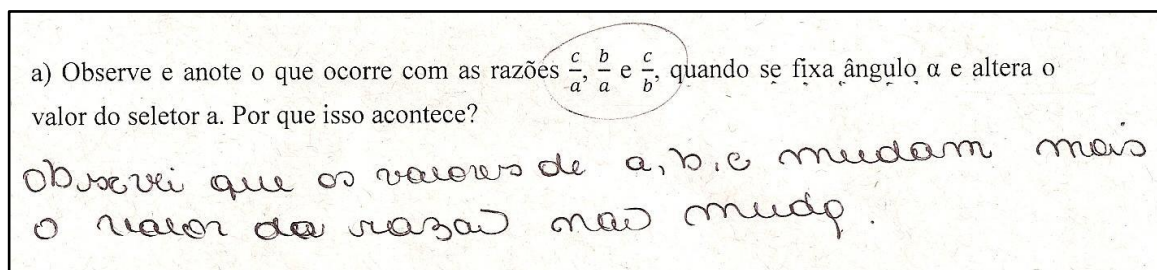 a) Observe e anote o que ocorre com as razões c/a, b/a e c/b, quando se fixa ângulo α e altera o
valor do seletor a. Por que isso acontece?
Observei que os valores de a, b, c mudam mais
o valor da razão não muda.